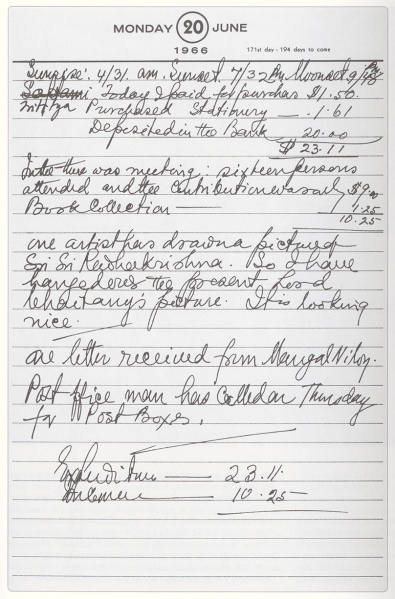 MONDAY 20 JUNE
1966 171st day - 194 days to come
Sunrise: 4/31 am. Sunset. 7/32 Pm Moonset 9/
Today I paid for purchas $1.50.
Purchased Stationery — 1.61
Deposited in the Bank 20.00
$ 23.11
there was meeting: sixteen persons
attended and the Contribution was only $9.00
Book Collection — 1.25
10.25
one artist has drawn a picture of
Sri Sri Radhakrishna. So I have
hanged over the present Lord
Chaitany's picture. It is looking
nice.
one letter received from Mangal Niloy.
Post office man has Called on Thursday
for Post Boxes.
Expenditure — 23.11.
Income — 10.25